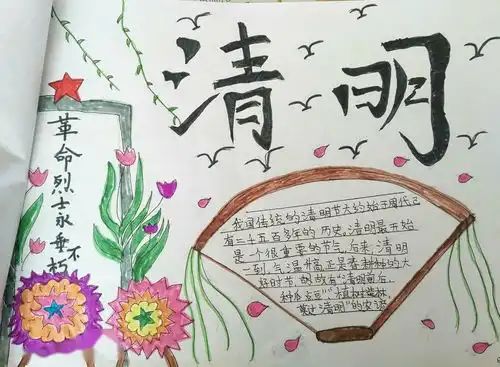 清明
革命烈士永垂不朽
我国传统的清明节大约始于周代已
有二千五百多年的历史,清明最开始
是一个很重要的节气,后来清明
一到,气温升高正是春耕春种的大
好时节,故有"清明前后,
种瓜点豆""植树造林
莫过"清明"的农谚